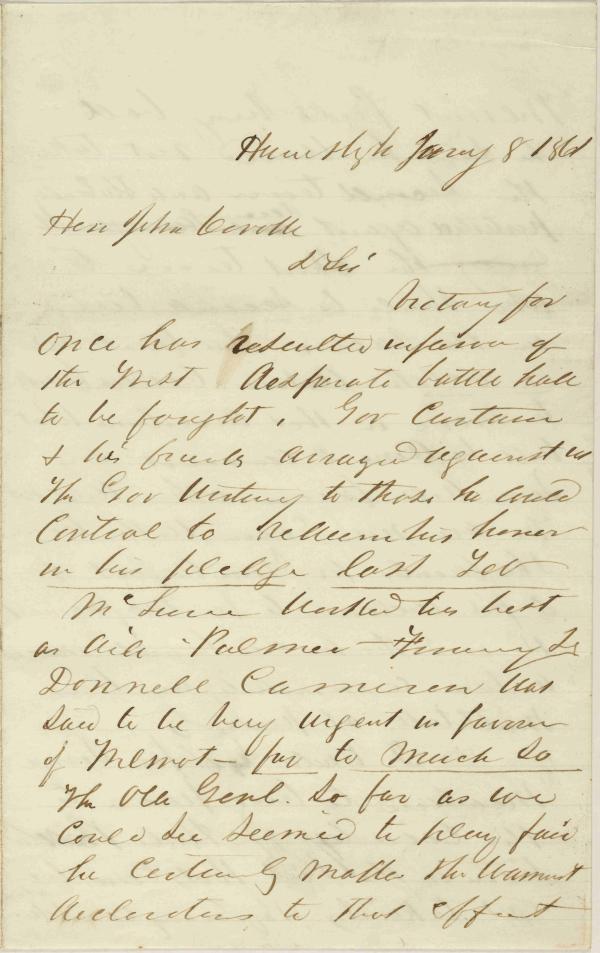 Jany 8 1861
Hon John Covode
D Sir
Victory for
once has resulted in favor of
the West Desperate battle had
to be fought. Gov Curtin
& his friends arrayed against us
The Gov writing to those he could
Control to redeem his honor
in his pledge last Feb
McClure worked his best
as did Palmer
Donnell Cameron was
said to be very urgent in favour
of Wilmot - far to much so
The Old Genl. so far as we
could see seemed to play fair
he certainly made the warmest
declarations to that effect